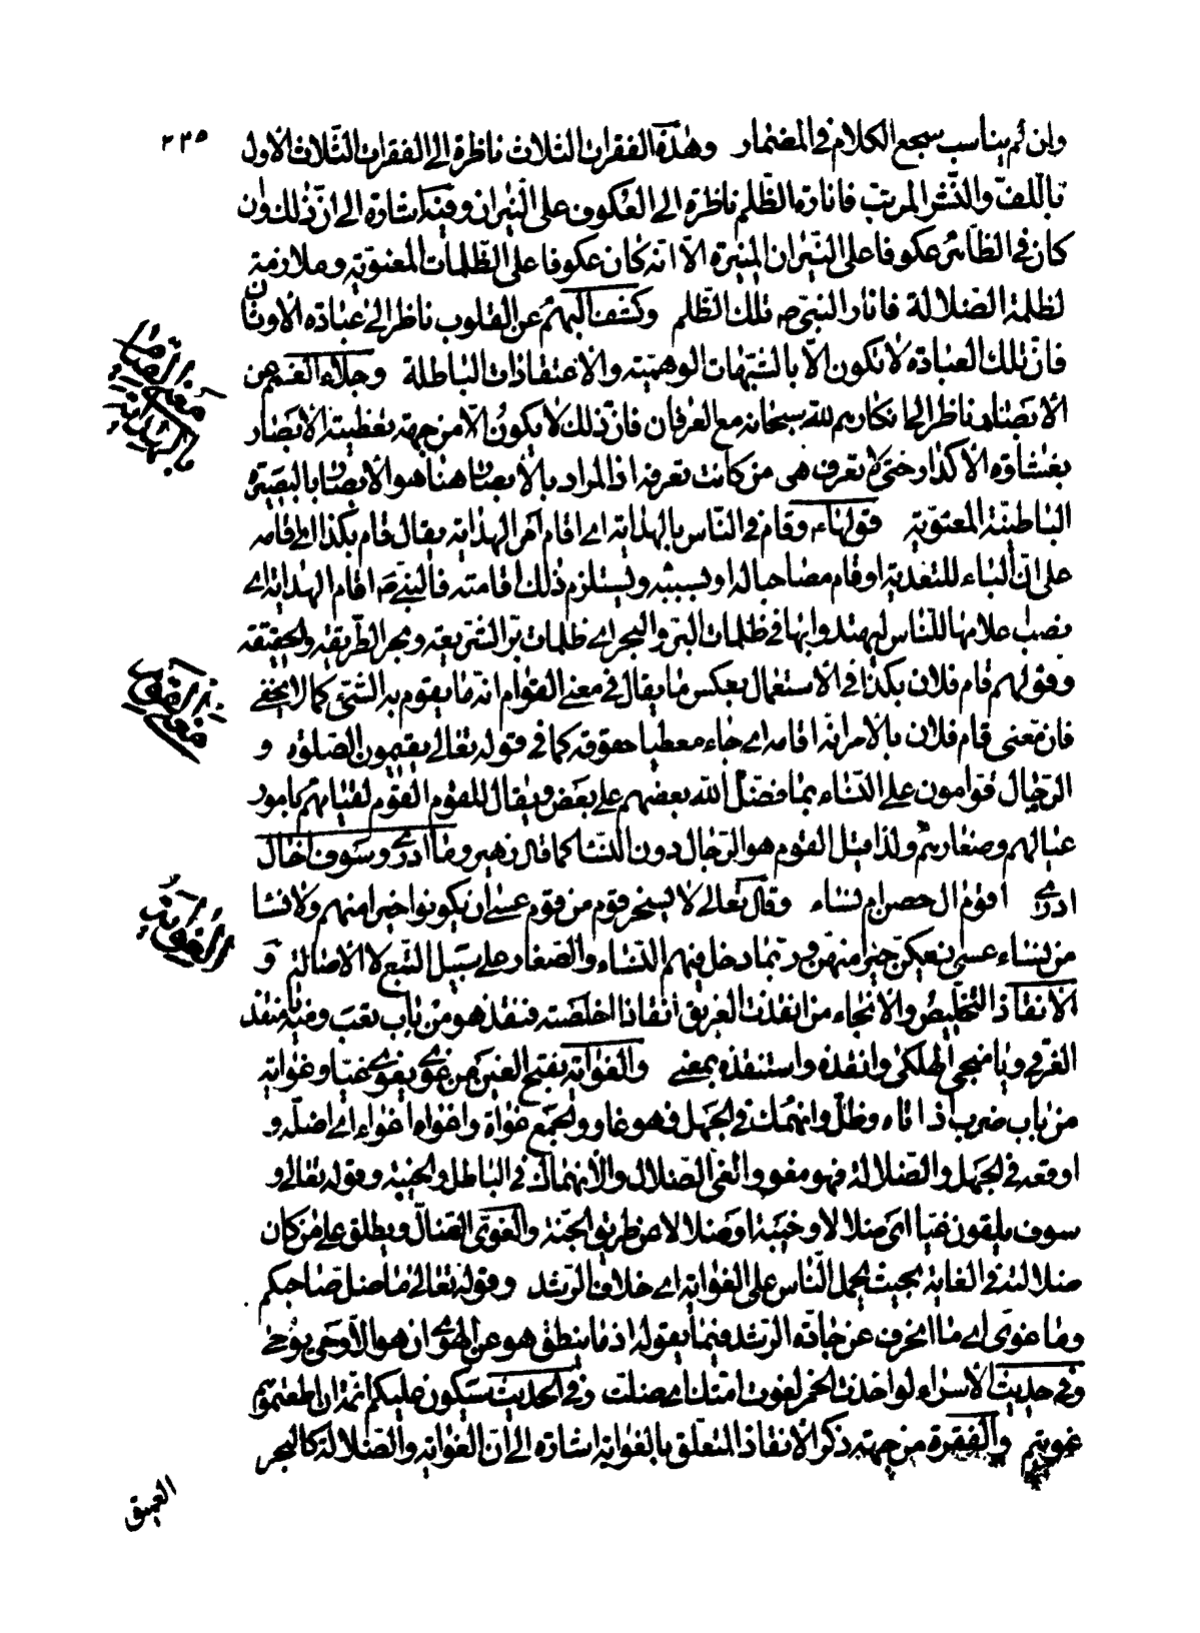 ٢٣٥
وان لم يناسب سجع الكلام في المضمار وهذه الفقرات الثلاث ناظرة الى الفقرات الثلاث الاول
باللف والنشر المرتب فانارة الظلم ناظرة الى العكوف على النيران وفيه اشارة الى ان ذلك وان
كان في الظاهر عكوفا على النيران المنيرة الا انه كان عكوفا على الظلمات المعنوية وملازمة
لظلمة الضلالة فانار النبي ص تلك الظلم وكشف البهم عن القلوب ناظر الى عبادة الاوثان
فان تلك العبادة لا تكون الا بالشبهات الوهمية والاعتقادات الباطلة وجلاء الغمم عن
الابصار ناظر الى انكارهم لله سبحانه مع العرفان فان ذلك لا يكون الا من جهة تغطية الابصار
بغشاوة الاكدار حتى لا تعرف هي من كانت تعرفه اذ المراد بالابصار هنا هو الابصار بالبصيرة
الباطنية المعنوية قولها ع وقام في الناس بالهداية اي اقام امر الهداية يقال قام بكذا اي اقامه
على ان الباء للتعدية او قام مصاحبا له او بسببه ويستلزم ذلك اقامته فالنبي ص اقام الهداية اي
نصب علامها للناس ليهتدوا بها في ظلمات البر والبحر اي ظلمات بر الشريعة وبحر الطريقة والحقيقة
وقولهم قام فلان بكذا في الاستعمال بعكس ما يقال في معنى القوام انه ما يقوم به الشيء كما لا يخفى
فان معنى قام فلان بالامر انه اقامه اي جاء معطيا حقوقه كما في قوله تعالى يقيمون الصلوة و
الرجال قوامون على النساء بما فضل الله بعضهم على بعض ويقال للقوم القوم لقيامهم بامور
عيالهم وصغارهم ولذا قيل القوم هو الرجال دون النساء كما قال زهير وما ادري وسوف اخال
ادري اقوم ال حصن ام نساء وقال تعالى لا يسخر قوم من قوم عسى ان يكونوا خيرا منهم ولا نساء
من نساء عسى ان يكن خيرا منهن وربما دخل فيهم النساء والصغار على سبيل التبع لا الاصالة و
الانقاذ التخليص والانجاء من انقذت الغريق انقاذا خلصته فنقذ هو من باب تعب ومنه يا منقذ
الغرقى ويا منجي الهلكى وانقذه واستنقذه بمعنى والغواية بفتح الغين من غوى يغوي غيا وغواية
من باب ضرب اذا تاه وضل وانهمك في الجهل فهو غاو والجمع غواة واغواه اغواء اي اضله و
اوقعه في الجهل والضلالة فهو مغو والغي الضلال والانهماك في الباطل والخيبة وقوله تعالى و
سوف يلقون غيا اي ضلالا وخيبة او ضلالا عن طريق الجنة والغوي الضال ويطلق على من كان
ضلالته في الغاية بحيث يحمل الناس على الغواية اي خلاف الرشد وقوله تعالى ما ضل صاحبكم
وما غوى اي ما انحرف عن جادة الرشد فيما يقوله اذ ما ينطق هو عن الهوى ان هو الا وحي يوحى
وفي حديث الاسراء لو اخذت الخمر لغوت امتك اي ضلت وفي الحديث ستكون عليكم ائمة ان اطعتموهم
غويتم والفقرة من جهة ذكر الانقاذ المتعلق بالغواية اشارة الى ان الغواية والضلالة كالبحر
العميق
معنى القيام
بالهداية
معنى القوم
الغواية